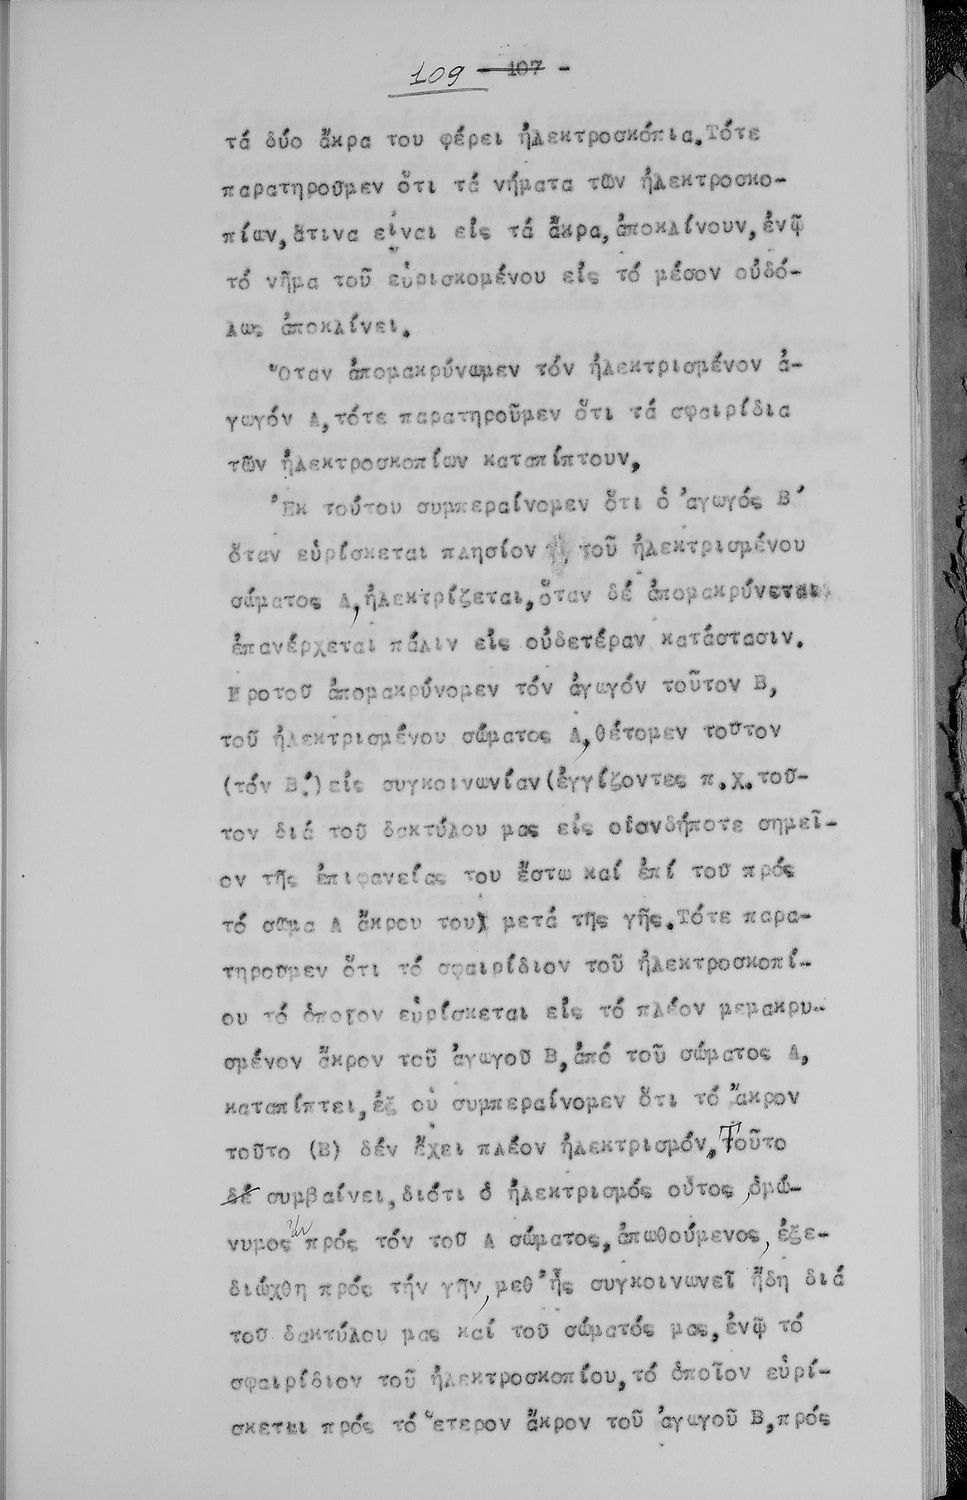 109 - 107 -
τά δύο ἄκρα του φέρει ἠλεκτροσκόπια. Τότε
παρατηροῦμεν ὅτι τά νήματα τῶν ἠλεκτροσκο-
πίων, ἅτινα εἶναι εἰς τά ἄκρα, ἀποκλίνουν, ἐνῷ
τό νῆμα τοῦ εὑρισκομένου εἰς τό μέσον οὐδό-
λως ἀποκλίνει.
Ὅταν ἀπομακρύνωμεν τόν ἠλεκτρισμένον ἀ-
γωγόν Α, τότε παρατηροῦμεν ὅτι τά σφαιρίδια
τῶν ἠλεκτροσκοπίων καταπίπτουν,
Ἐκ τούτου συμπεραίνομεν ὅτι ὁ ἀγωγός Β'
ὅταν εὑρίσκεται πλησίον τοῦ ἠλεκτρισμένου
σώματος Α, ἠλεκτρίζεται, ὅταν δέ ἀπομακρύνεται
ἐπανέρχεται πάλιν εἰς οὐδετέραν κατάστασιν.
Προτοῦ ἀπομακρύνομεν τόν ἀγωγόν τοῦτον Β,
τοῦ ἠλεκτρισμένου σώματος Α, θέτομεν τοῦτον
(τόν Β') εἰς συγκοινωνίαν (ἐγγίζοντες π.χ. τοῦ-
τον διά τοῦ δακτύλου μας εἰς οἱανδήποτε σημεῖ-
ον τῆς ἐπιφανείας του ἔστω καί ἐπί τοῦ πρός
τό σῶμα Α ἄκρου του) μετά τῆς γῆς. Τότε παρα-
τηροῦμεν ὅτι τό σφαιρίδιον τοῦ ἠλεκτροσκοπί-
ου τό ὁποῖον εὑρίσκεται εἰς τό πλέον μεμακρυ-
σμένον ἄκρον τοῦ ἀγωγοῦ Β, ἀπό τοῦ σώματος Α,
καταπίπτει, ἐξ οὗ συμπεραίνομεν ὅτι τό ἄκρον
τοῦτο (Β) δέν ἔχει πλέον ἠλεκτρισμόν. Τοῦτο
δέ συμβαίνει, διότι ὁ ἠλεκτρισμός οὗτος, ὁμώ-
νυμος ὤν πρός τόν τοῦ Α σώματος, ἀπωθούμενος, ἐξε-
διώχθη πρός τήν γῆν, μεθ' ἧς συγκοινωνεῖ ἤδη διά
τοῦ δακτύλου μας καί τοῦ σώματός μας, ἐνῷ τό
σφαιρίδιον τοῦ ἠλεκτροσκοπίου, τό ὁποῖον εὑρί-
σκεται πρός τό ἕτερον ἄκρον τοῦ ἀγωγοῦ Β, πρός